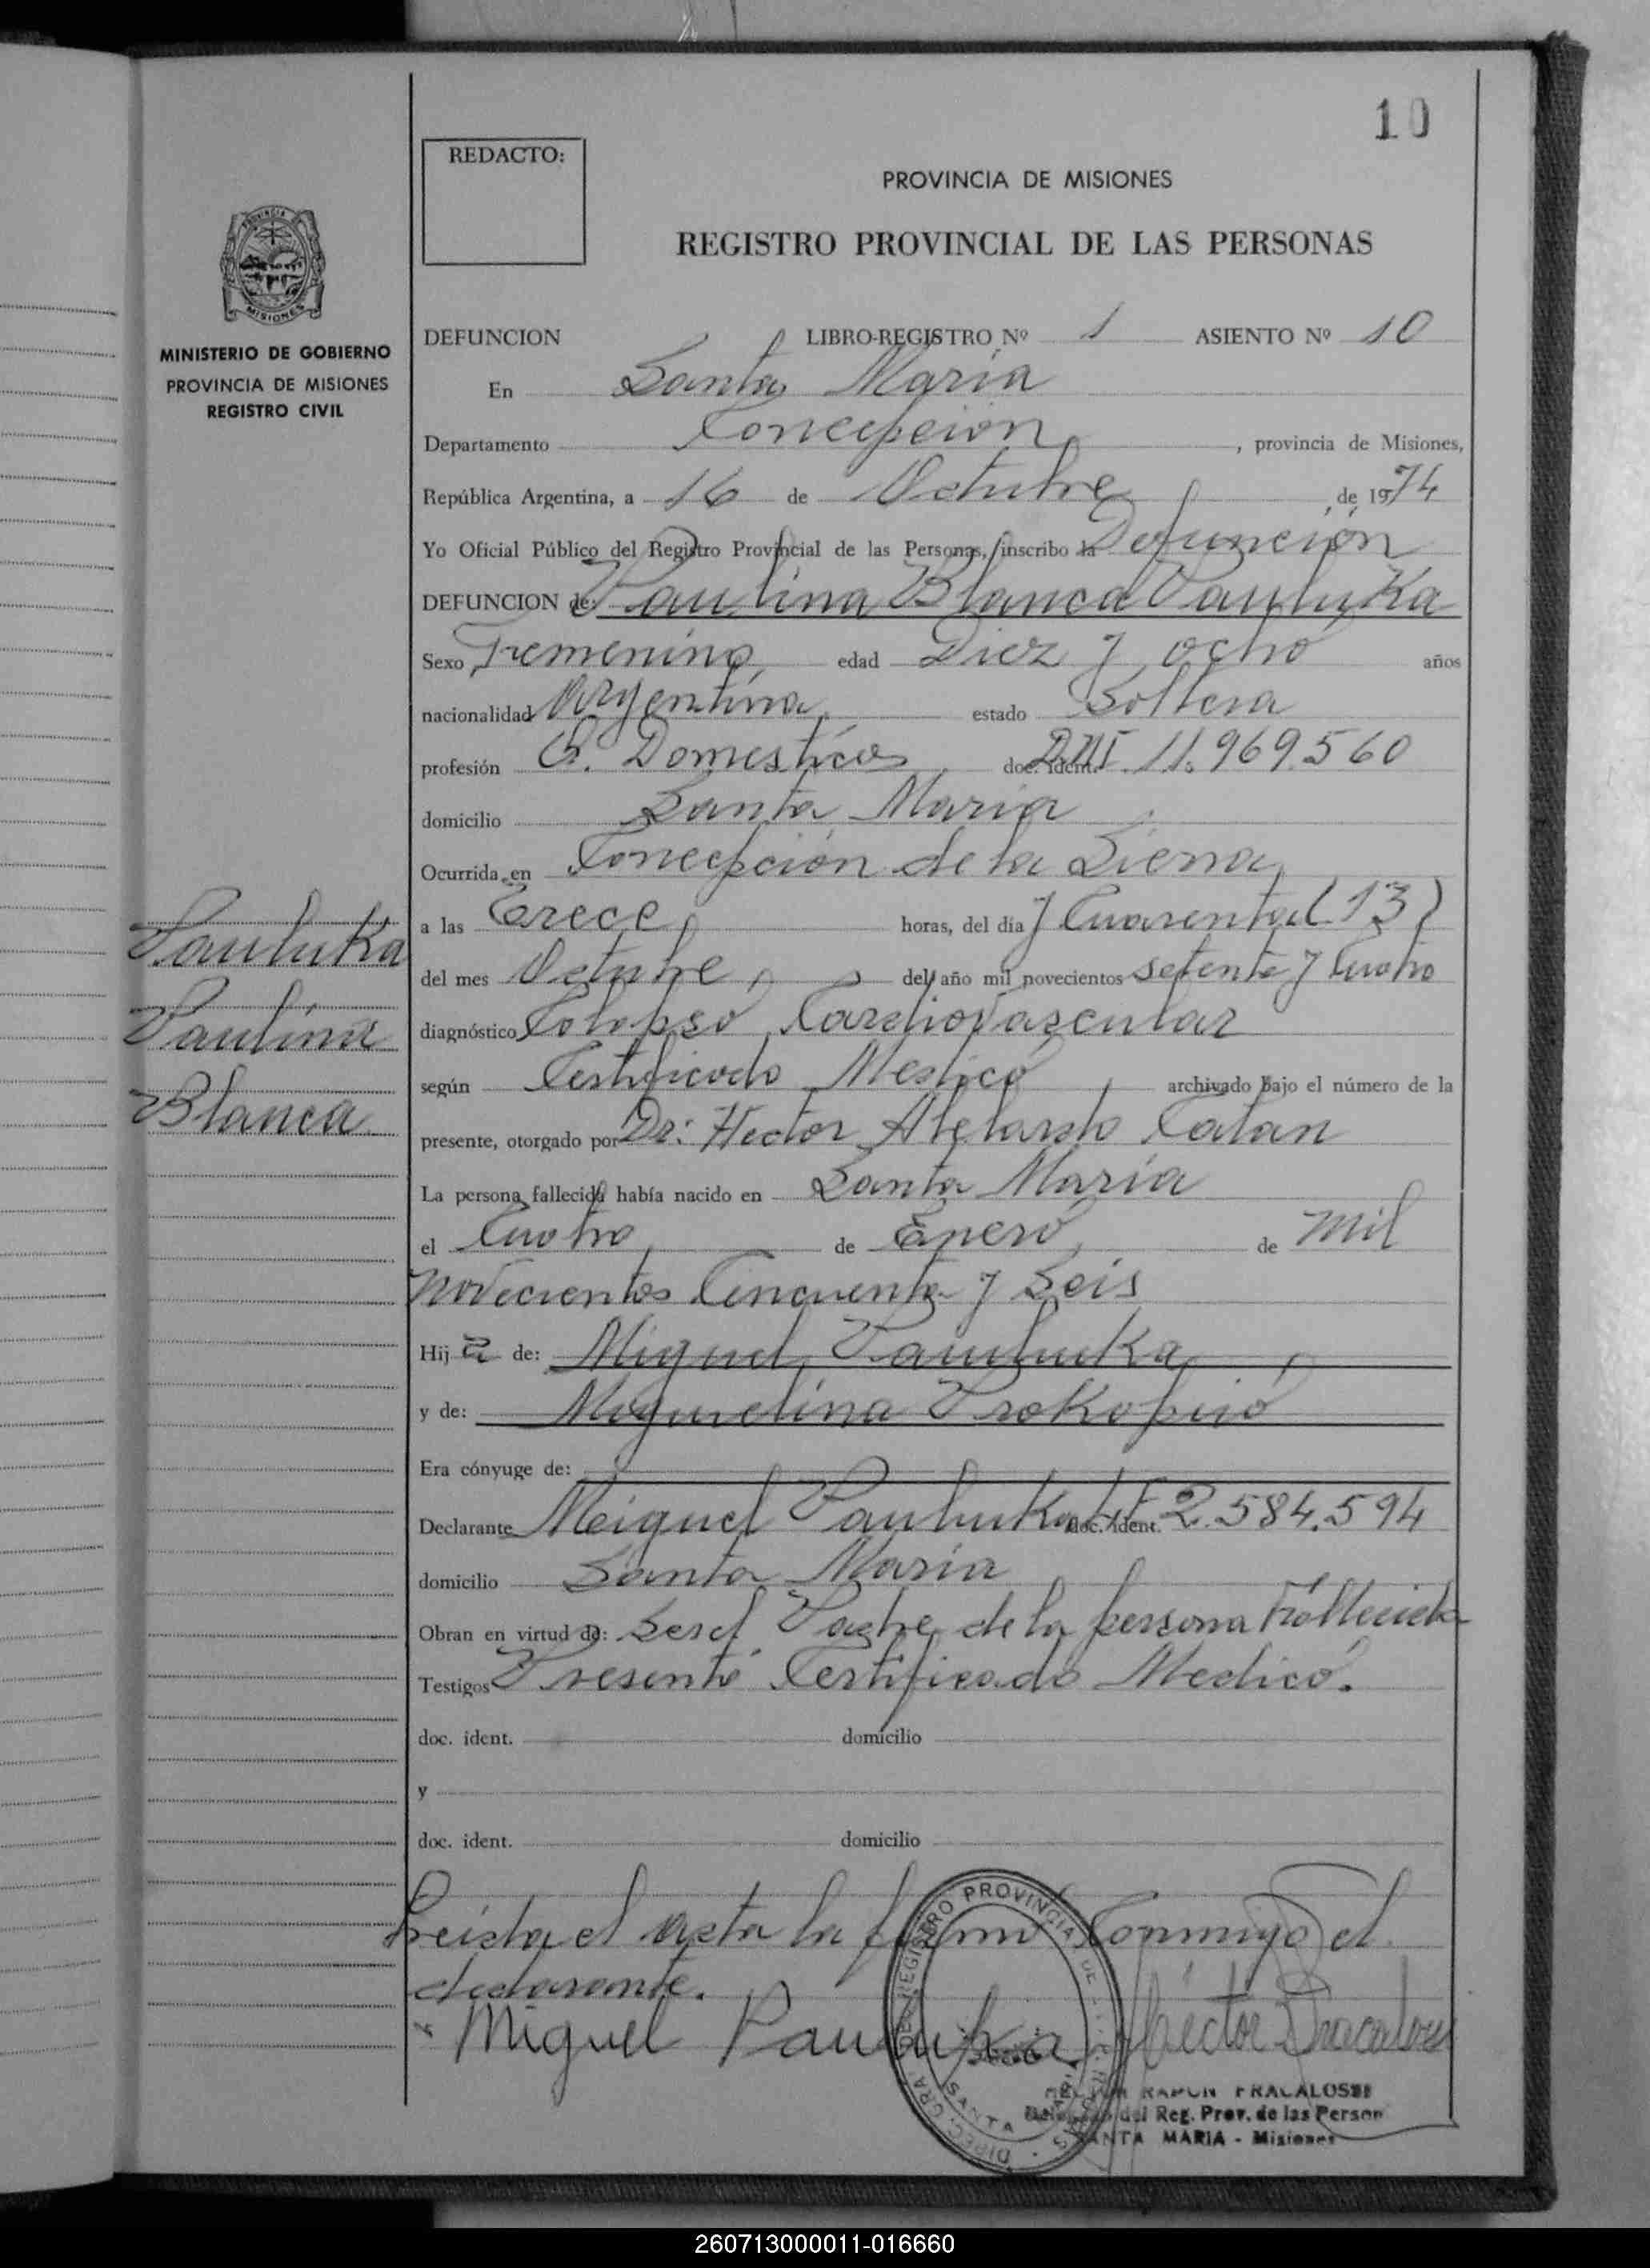 10
REDACTO:
PROVINCIA DE MISIONES
REGISTRO PROVINCIAL DE LAS PERSONAS
MINISTERIO DE GOBIERNO
PROVINCIA DE MISIONES
REGISTRO CIVIL
DEFUNCION LIBRO-REGISTRO Nº 1 ASIENTO Nº 10
En Santa María
Departamento Concepción, provincia de Misiones,
República Argentina, a 16 de Octubre, de 1974
Yo Oficial Público del Registro Provincial de las Personas, inscribo la Defunción
DEFUNCION de Paulina Blanca Pauluka
Sexo Femenino, edad Diez y ocho años
nacionalidad Argentina, estado Soltera
profesión Q. Domesticos doc. ident. DNI 11.969.560
domicilio Santa Maria
Ocurrida en Concepción de la Sierra,
a las Trece, horas, del día y Cuarenta (13)
del mes Octubre, del año mil novecientos setenta y Cuatro
diagnóstico Colapso Cardiovascular
según Certificado Medico, archivado bajo el número de la
presente, otorgado por Dr: Hector Abelardo Catan
La persona fallecida había nacido en Santa María
el Cuatro, de Enero, de mil
novecientos Cincuenta y Seis
Hij a de: Miguel Pauluka,
y de: Miguelina Prokopio
Era cónyuge de:
Declarante Miguel Pauluka doc. ident. 2.584.594
domicilio Santa Maria
Obran en virtud de: Ser el Padre de la persona Fallecida
Testigos Presentó Certificado Medico.
doc. ident. domicilio
y
doc. ident. domicilio
Leida el acta la firmó Conmigo el
declarante.
Miguel Pauluka Héctor Fracalossi
Pauluka
Paulina
Blanca
REGISTRO PROVINCIAL DE
SANTA
RAMON FRACALOSSI
Delegado del Reg. Prov. de las Person
SANTA MARIA - Misiones
260713000011-016660